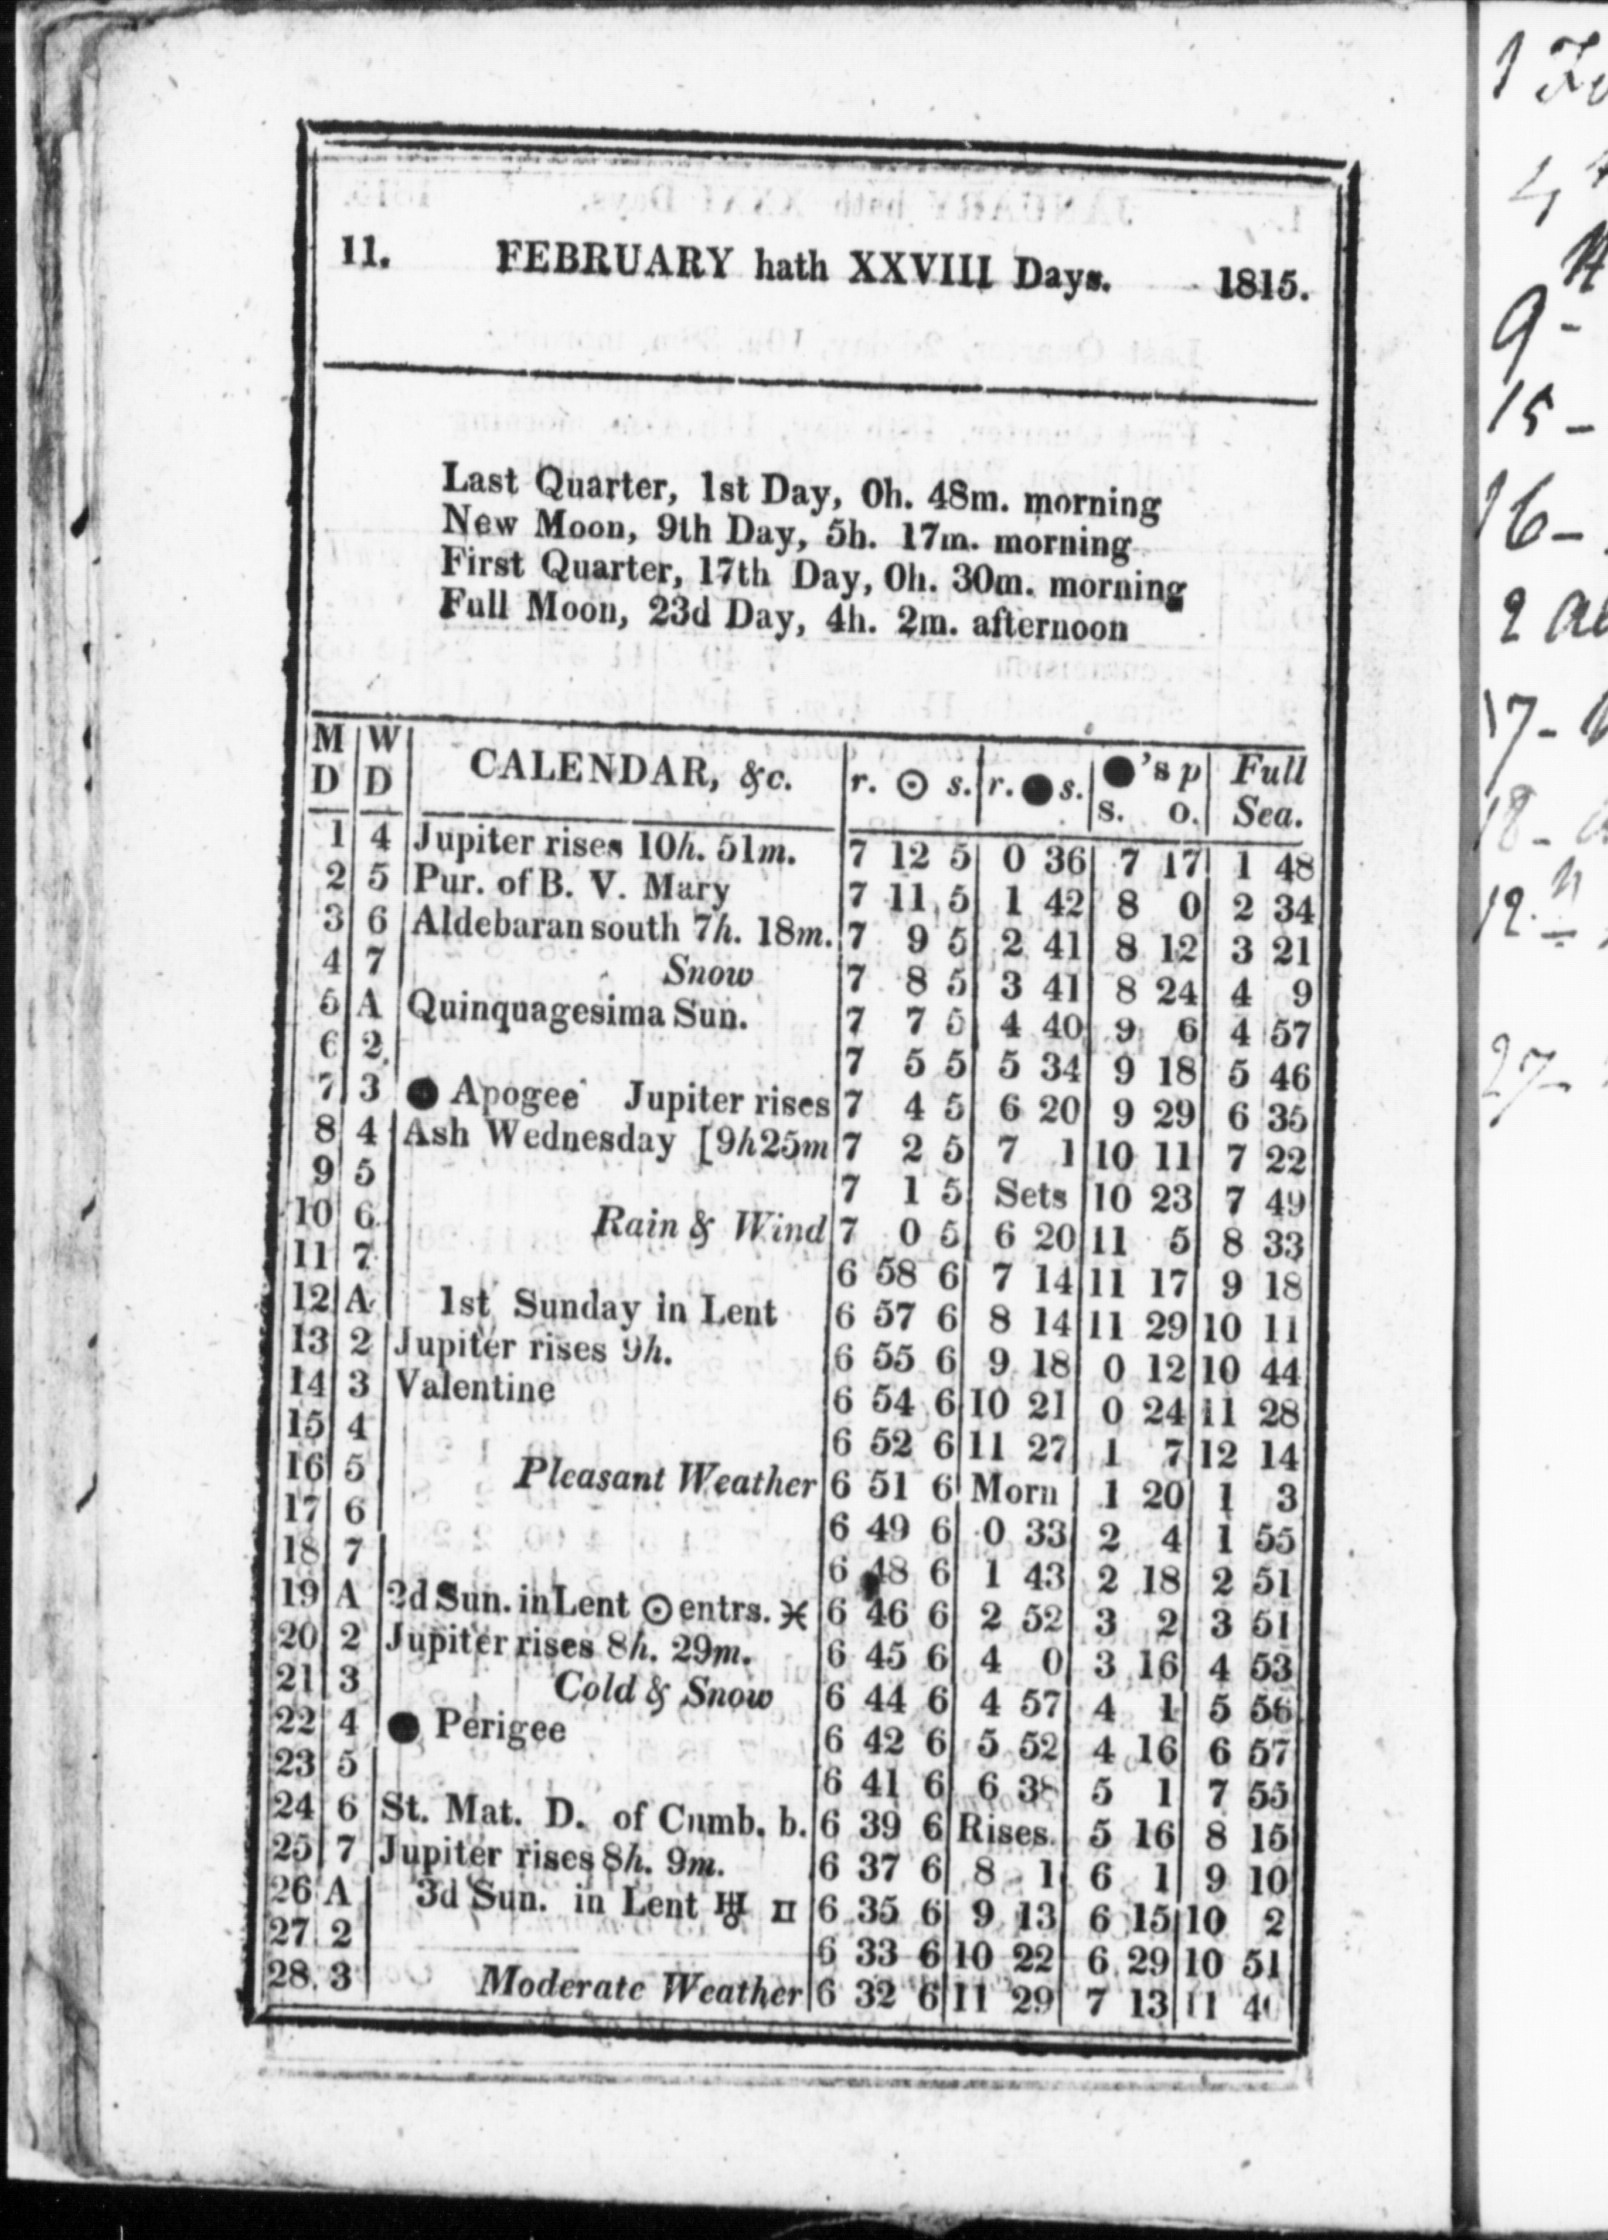 11. FEBRUARY hath XXVIII Days. 1815.
Last Quarter, 1st Day, 0h. 48m. morning
New Moon, 9th Day, 5h. 17m. morning
First Quarter, 17th Day, 0h. 30m. morning
Full Moon, 23d Day, 4h. 2m. afternoon
M D W D CALENDAR, &c. r. ☉ s. r. ● s. ●'s p s. o. Full Sea.
1 4 Jupiter rises 10h. 51m. 7 12 5 0 36 7 17 1 48
2 5 Pur. of B. V. Mary 7 11 5 1 42 8 0 2 34
3 6 Aldebaran south 7h. 18m. 7 9 5 2 41 8 12 3 21
4 7 Snow 7 8 5 3 41 8 24 4 9
5 A Quinquagesima Sun. 7 7 5 4 40 9 6 4 57
6 2 7 5 5 5 34 9 18 5 46
7 3 ● Apogee Jupiter rises 7 4 5 6 20 9 29 6 35
8 4 Ash Wednesday [9h25m 7 2 5 7 1 10 11 7 22
9 5 7 1 5 Sets 10 23 7 49
10 6 Rain & Wind 7 0 5 6 20 11 5 8 33
11 7 6 58 6 7 14 11 17 9 18
12 A 1st Sunday in Lent 6 57 6 8 14 11 29 10 11
13 2 Jupiter rises 9h. 6 55 6 9 18 0 12 10 44
14 3 Valentine 6 54 6 10 21 0 24 11 28
15 4 6 52 6 11 27 1 7 12 14
16 5 Pleasant Weather 6 51 6 Morn 1 20 1 3
17 6 6 49 6 0 33 2 4 1 55
18 7 6 48 6 1 43 2 18 2 51
19 A 2d Sun. in Lent ☉ entrs. ♓ 6 46 6 2 52 3 2 3 51
20 2 Jupiter rises 8h. 29m. 6 45 6 4 0 3 16 4 53
21 3 Cold & Snow 6 44 6 4 57 4 1 5 56
22 4 ● Perigee 6 42 6 5 52 4 16 6 57
23 5 6 41 6 6 38 5 1 7 55
24 6 St. Mat. D. of Cumb. b. 6 39 6 Rises. 5 16 8 15
25 7 Jupiter rises 8h. 9m. 6 37 6 8 1 6 1 9 10
26 A 3d Sun. in Lent ♅ ♊ 6 35 6 9 13 6 15 10 2
27 2 6 33 6 10 22 6 29 10 51
28 3 Moderate Weather 6 32 6 11 29 7 13 11
1
4
9-
15-
16-
2
17-
18-
12
27-